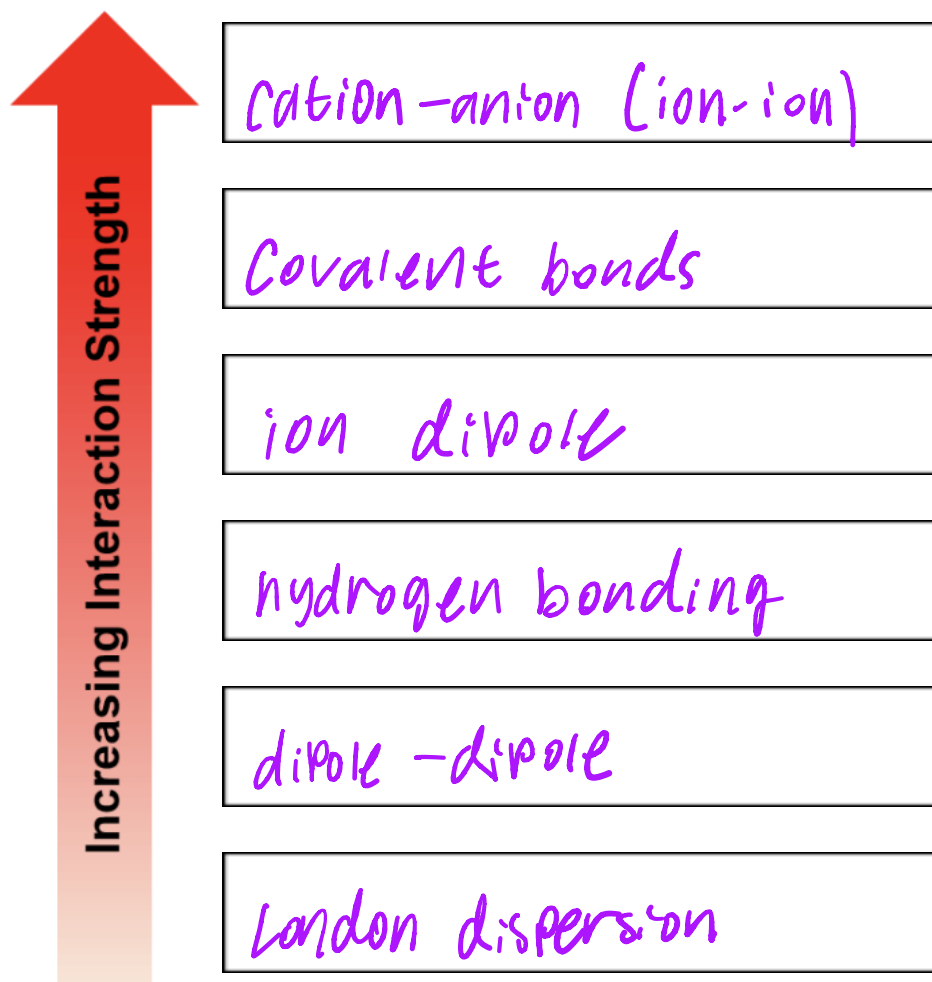 Increasing Interaction Strength
Cation-anion (ion-ion)
Covalent bonds
ion dipole
hydrogen bonding
dipole-dipole
London dispersion